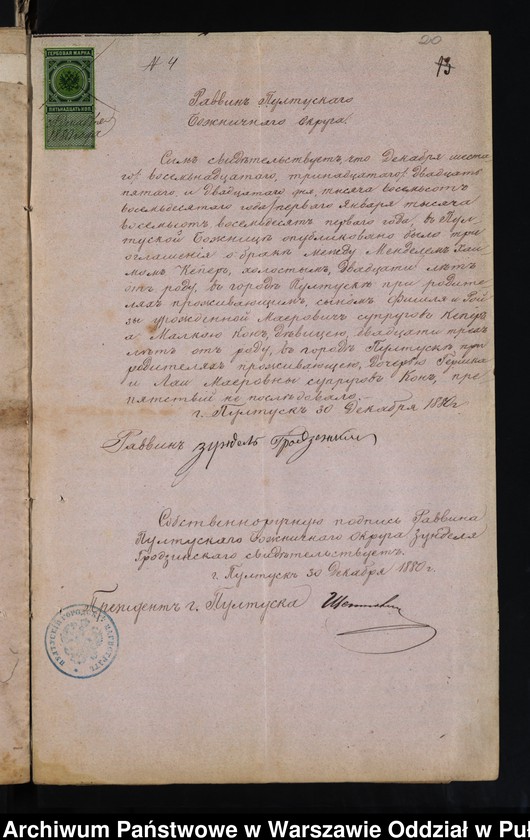 20
№ 4
13
ГЕРБОВАЯ МАРКА
ПЯТЬНАДЦАТЬ КОП.
Раввинъ Пултускаго
Божничнаго Округа
Симъ свидѣтельствуетъ, что Декабря шеста
го/ восемьнадцатаго, тринадцатаго/ двадцать
пятаго, и двадцатаго дня, тысяча восемьсотъ
восемьдесятаго года/ перваго Января тысяча
восемьсотъ восемьдесятъ перваго года, въ Пул-
туской Божницѣ опубликовано было три
оглашенія о бракѣ между Менделемъ Хаи
момъ Кеперъ, холостымъ, двадцати лѣтъ
отъ роду, въ городѣ Пултускѣ при родите
ляхъ проживающимъ, сыномъ Фишеля и
урожденной Маеровичъ супруговъ Кеперъ
а Малкою Конъ, дѣвицею, двадцати трехъ
лѣтъ отъ роду, въ городѣ Пултускѣ при
родителяхъ проживающею, дочерью Гершка
и Лаи Маеровной супруговъ Конъ, пре
пятствій не послѣдовало.
г. Пултускъ 30 Декабря 1880 г
Раввинъ Зундель Гродзенскій
Собственноручную подпись Раввина
Пултускаго Божничнаго Округа Зунделя
Гродзинскаго свидѣтельствуетъ.
г. Пултускъ 30 Декабря 1880 г.
Президентъ г. Пултуска
Archiwum Państwowe w Warszawie Oddział w Pu